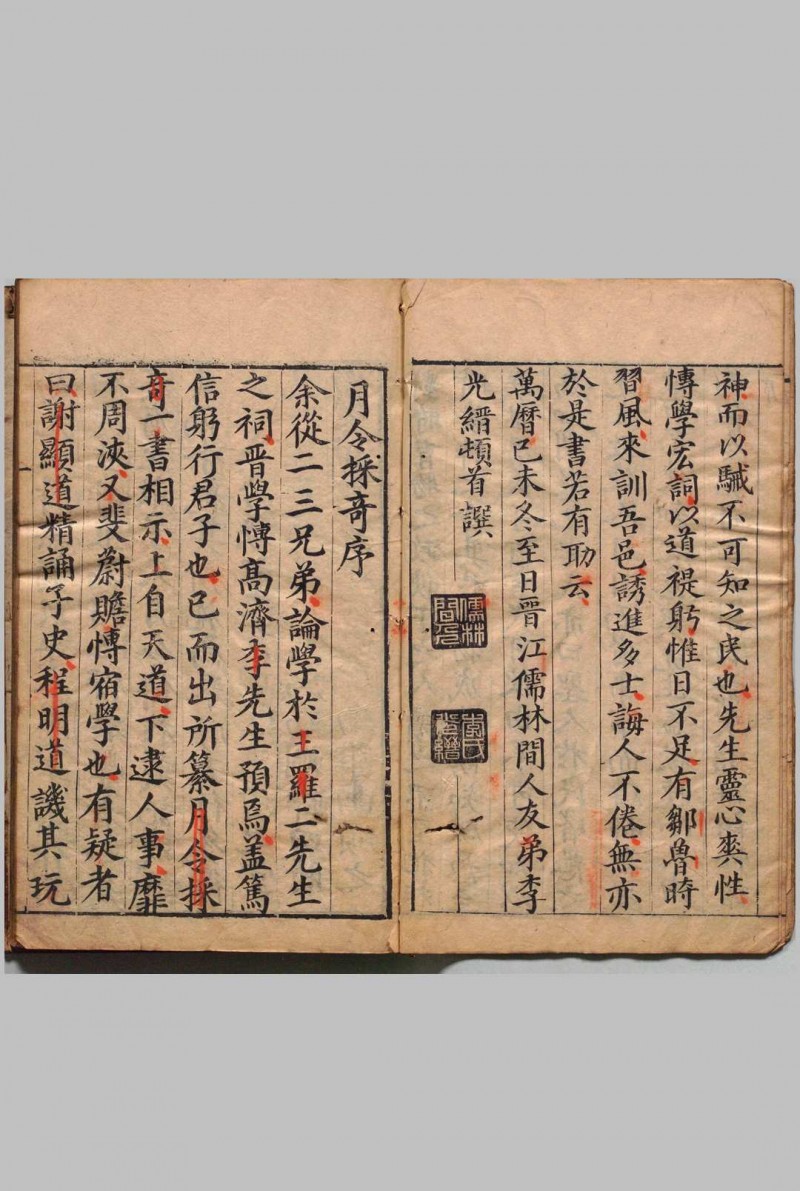 神而以駴不可知之民也先生靈心爽性
慱學宏詞以道禔躬惟日不足有鄒魯時
習風來訓吾邑誘進多士誨人不倦無亦
於是書若有取云
萬曆己未冬至日晉江儒林間人友弟李
光縉頓首譔
儒林間人
李氏光縉
月令採奇序
余從二三兄弟論學於王羅二先生
之祠晋學慱高濟李先生預焉盖篤
信躬行君子也已而出所纂月令採
奇一書相示上自天道下逮人事靡
不周浹又斐蔚贍慱宿學也有疑者
曰謝顯道精誦子史程明道譏其玩